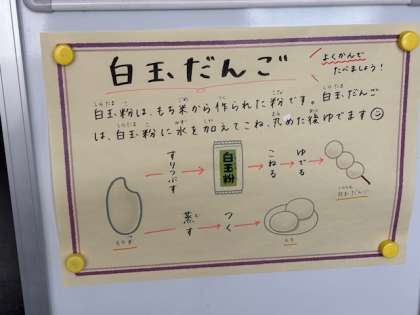 白玉だんご
よくかんで
たべましょう!
白玉粉は、もち米から作られた粉です。白玉だんご
は、白玉粉に水を加えてこね、丸めた後ゆでます
すりつぶす
白玉粉
こねる
ゆでる
白玉だんご
もち米
蒸す
つく
もち